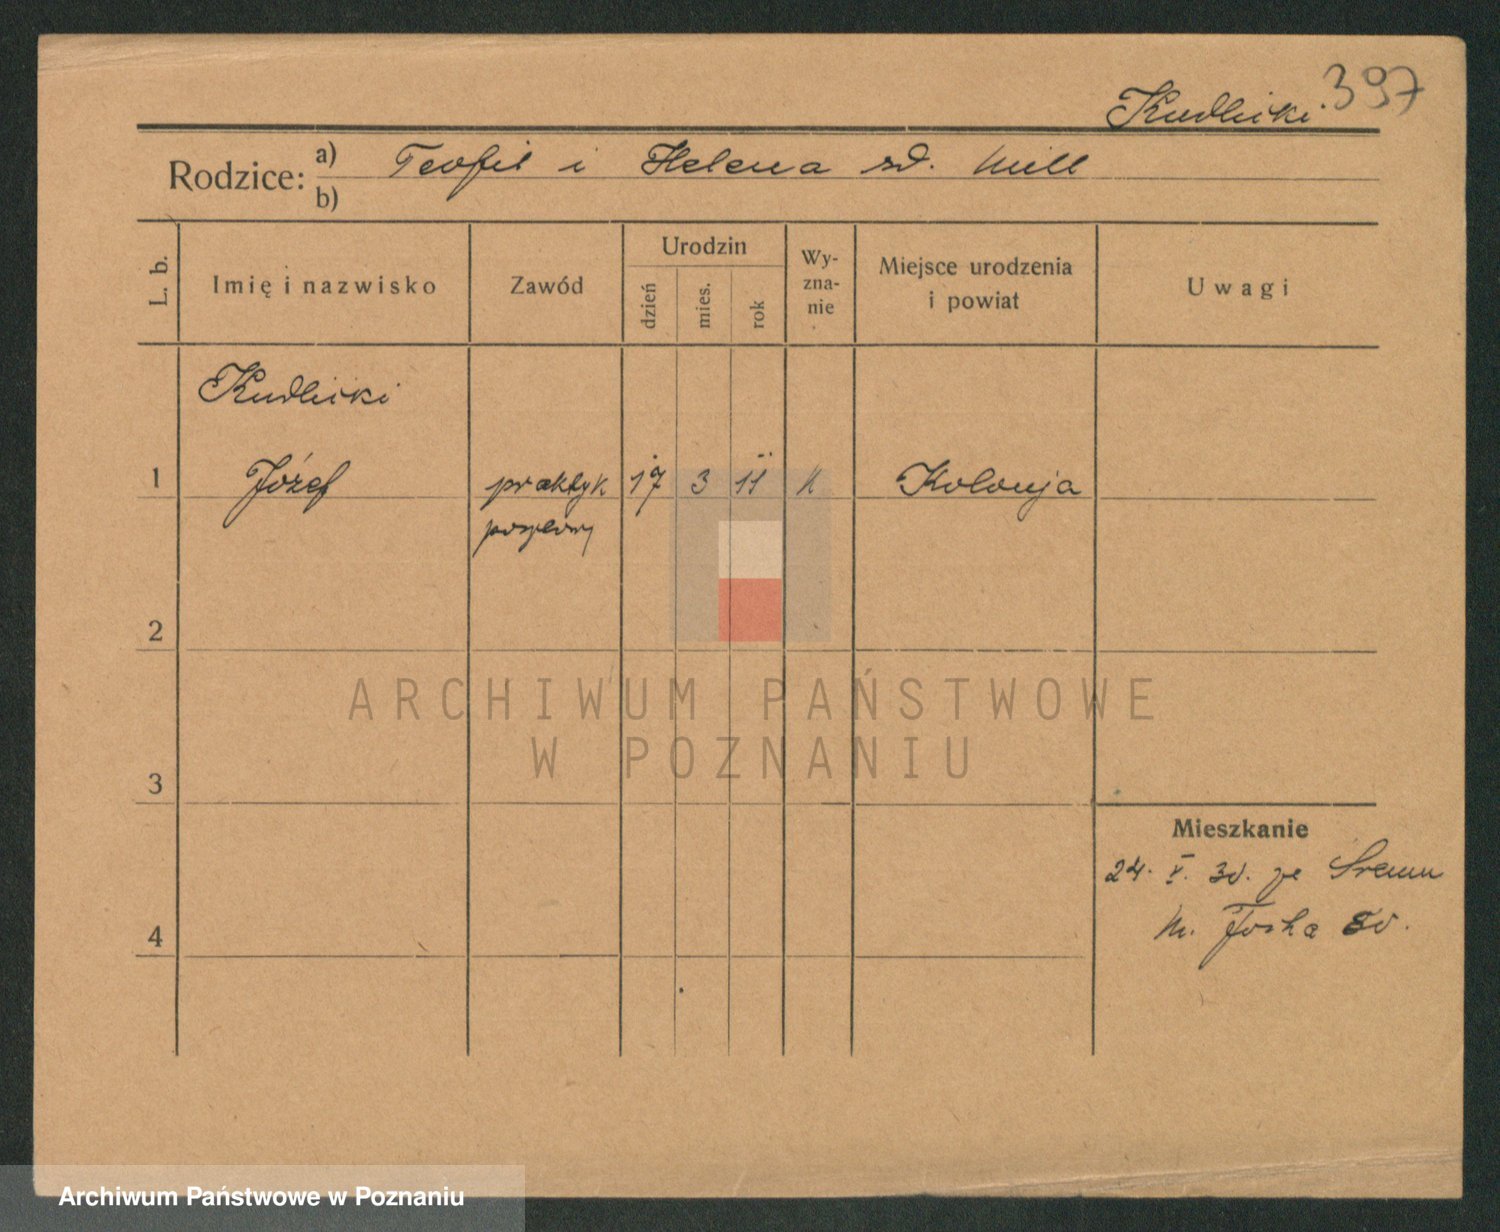 397
Kudlicki
Rodzice: a) Teofil i Helena zd. Mill
b)
L. b. Imię i nazwisko Zawód Urodzin dzień mies. rok Wy-zna-nie Miejsce urodzenia i powiat Uwagi
Kudlicki
1 Józef praktyk 17 3 11 k Kolonja
2
ARCHIWUM PAŃSTWOWE
W POZNANIU
3
Mieszkanie
24. V. 30. ze Śremu
4 m. Focha 80.
Archiwum Państwowe w Poznaniu